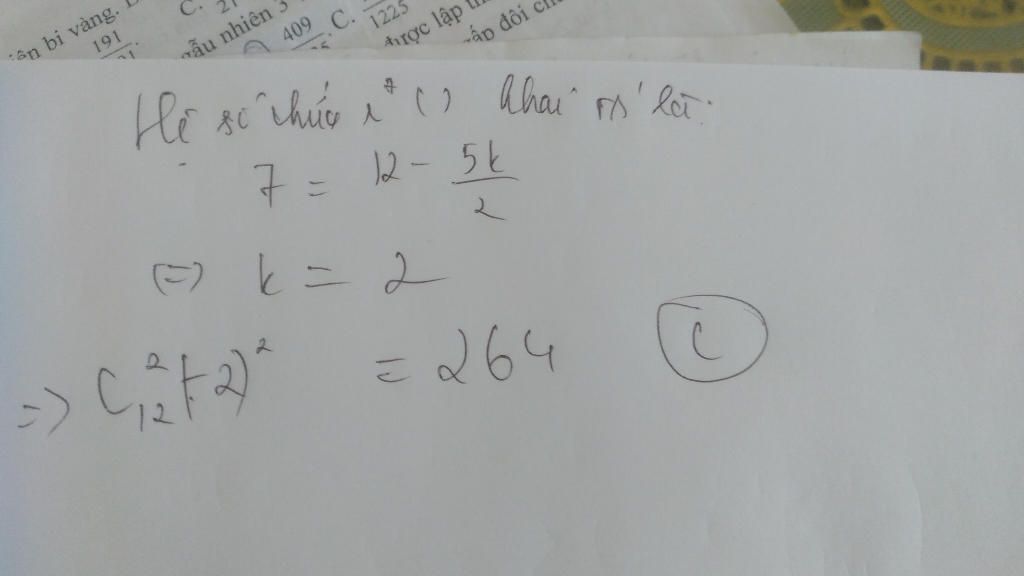 iên bi vàng.
C.
191
mẫu nhiên 3
409
C.
1225
được lập th
gấp đôi ch
Hệ số chứa x^7 () khai là:
7 = 12 - 5k/2
(=) k = 2
=> C_12^2 (-2)^2 = 264 C